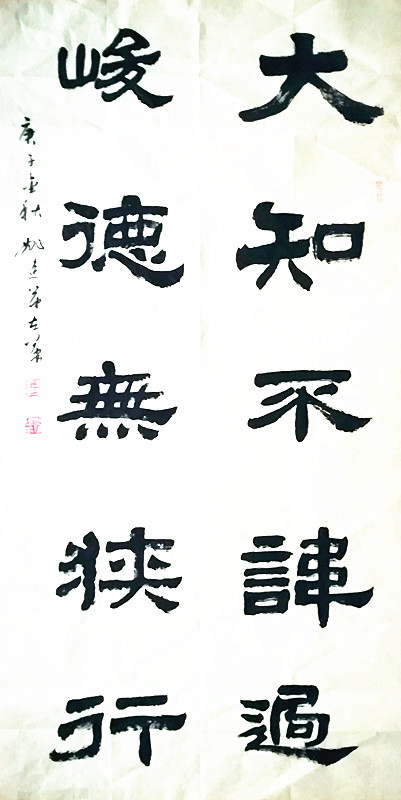 大知不諱過
峻德無狹行
庚子金秋